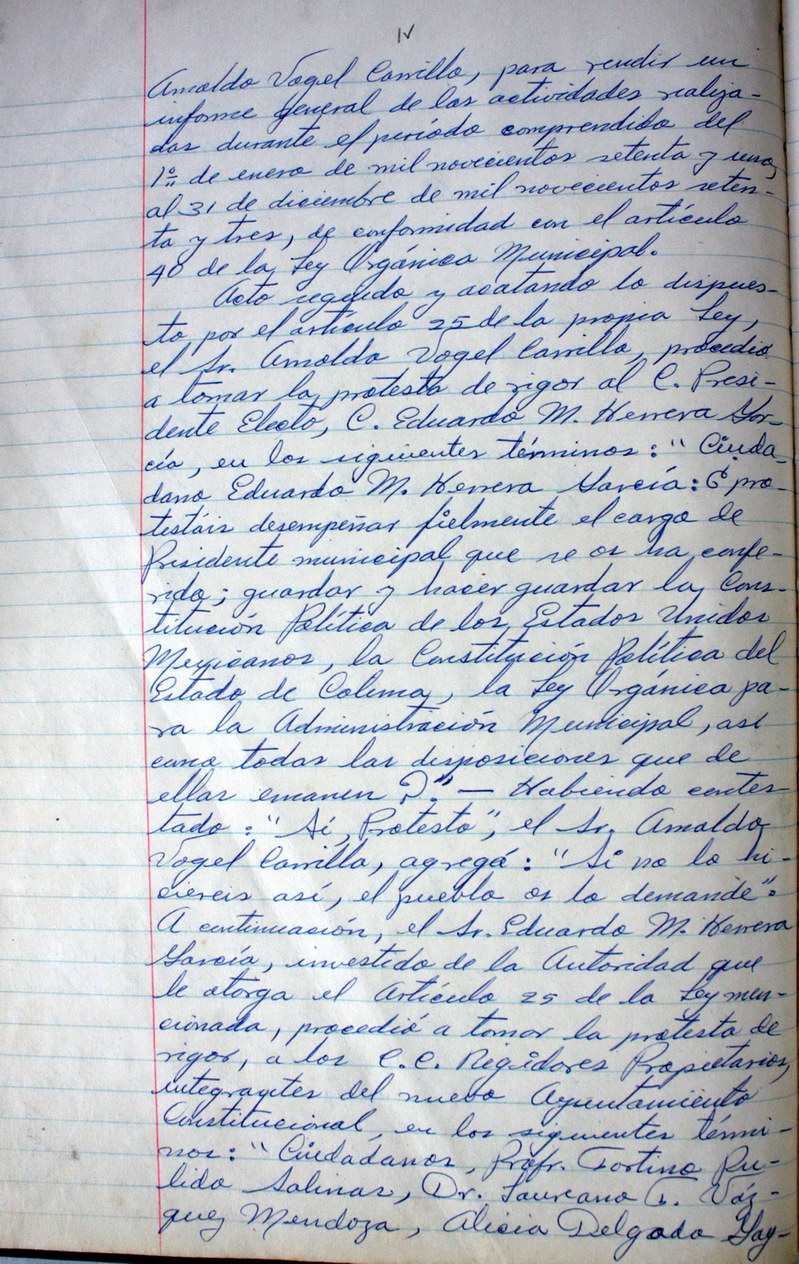 IV
Arnoldo Vogel Carrillo, para rendir un
informe general de las actividades realiza-
das durante el período comprendido del
1º de enero de mil novecientos setenta y uno,
al 31 de diciembre de mil novecientos seten-
ta y tres, de conformidad con el artículo
40 de la Ley Orgánica Municipal.
Acto seguido y acatando lo dispues-
to por el artículo 25 de la propia Ley,
el Sr. Arnoldo Vogel Carrillo, procedio
a tomar la protesta de rigor al C. Presi-
dente Electo, C. Eduardo M. Herrera Gar-
cía, en los siguientes términos: "Ciuda-
dano Eduardo M. Herrera García: ¿ pro-
testáis desempeñar fielmente el cargo de
Presidente municipal que se os ha confe-
rido; guardar y hacer guardar la Cons-
titución Política de los Estados Unidos
Mexicanos, la Constitución Política del
Estado de Colima, la Ley Orgánica pa-
ra la Administración Municipal, así
como todas las disposiciones que de
ellas emanen ?" — Habiendo contes-
tado: "Sí, Protesto", el Sr. Arnoldo
Vogel Carrillo, agregá: "Si no lo hi-
ciereis así, el pueblo os lo demande".
A continuación, el Sr. Eduardo M. Herrera
García, investido de la Autoridad que
le otorga el Artículo 25 de la Ley men-
cionada, procedió a tomar la protesta de
rigor, a los C.C. Regidores Propietarios,
integrantes del nuevo Ayuntamiento
Constitucional, en los siguientes térmi-
nos: "Ciudadanos, Profr. Fortino Pu-
lido Salinas, Dr. Laureano F. Váz-
quez Mendoza, Alicia Delgado Gay-